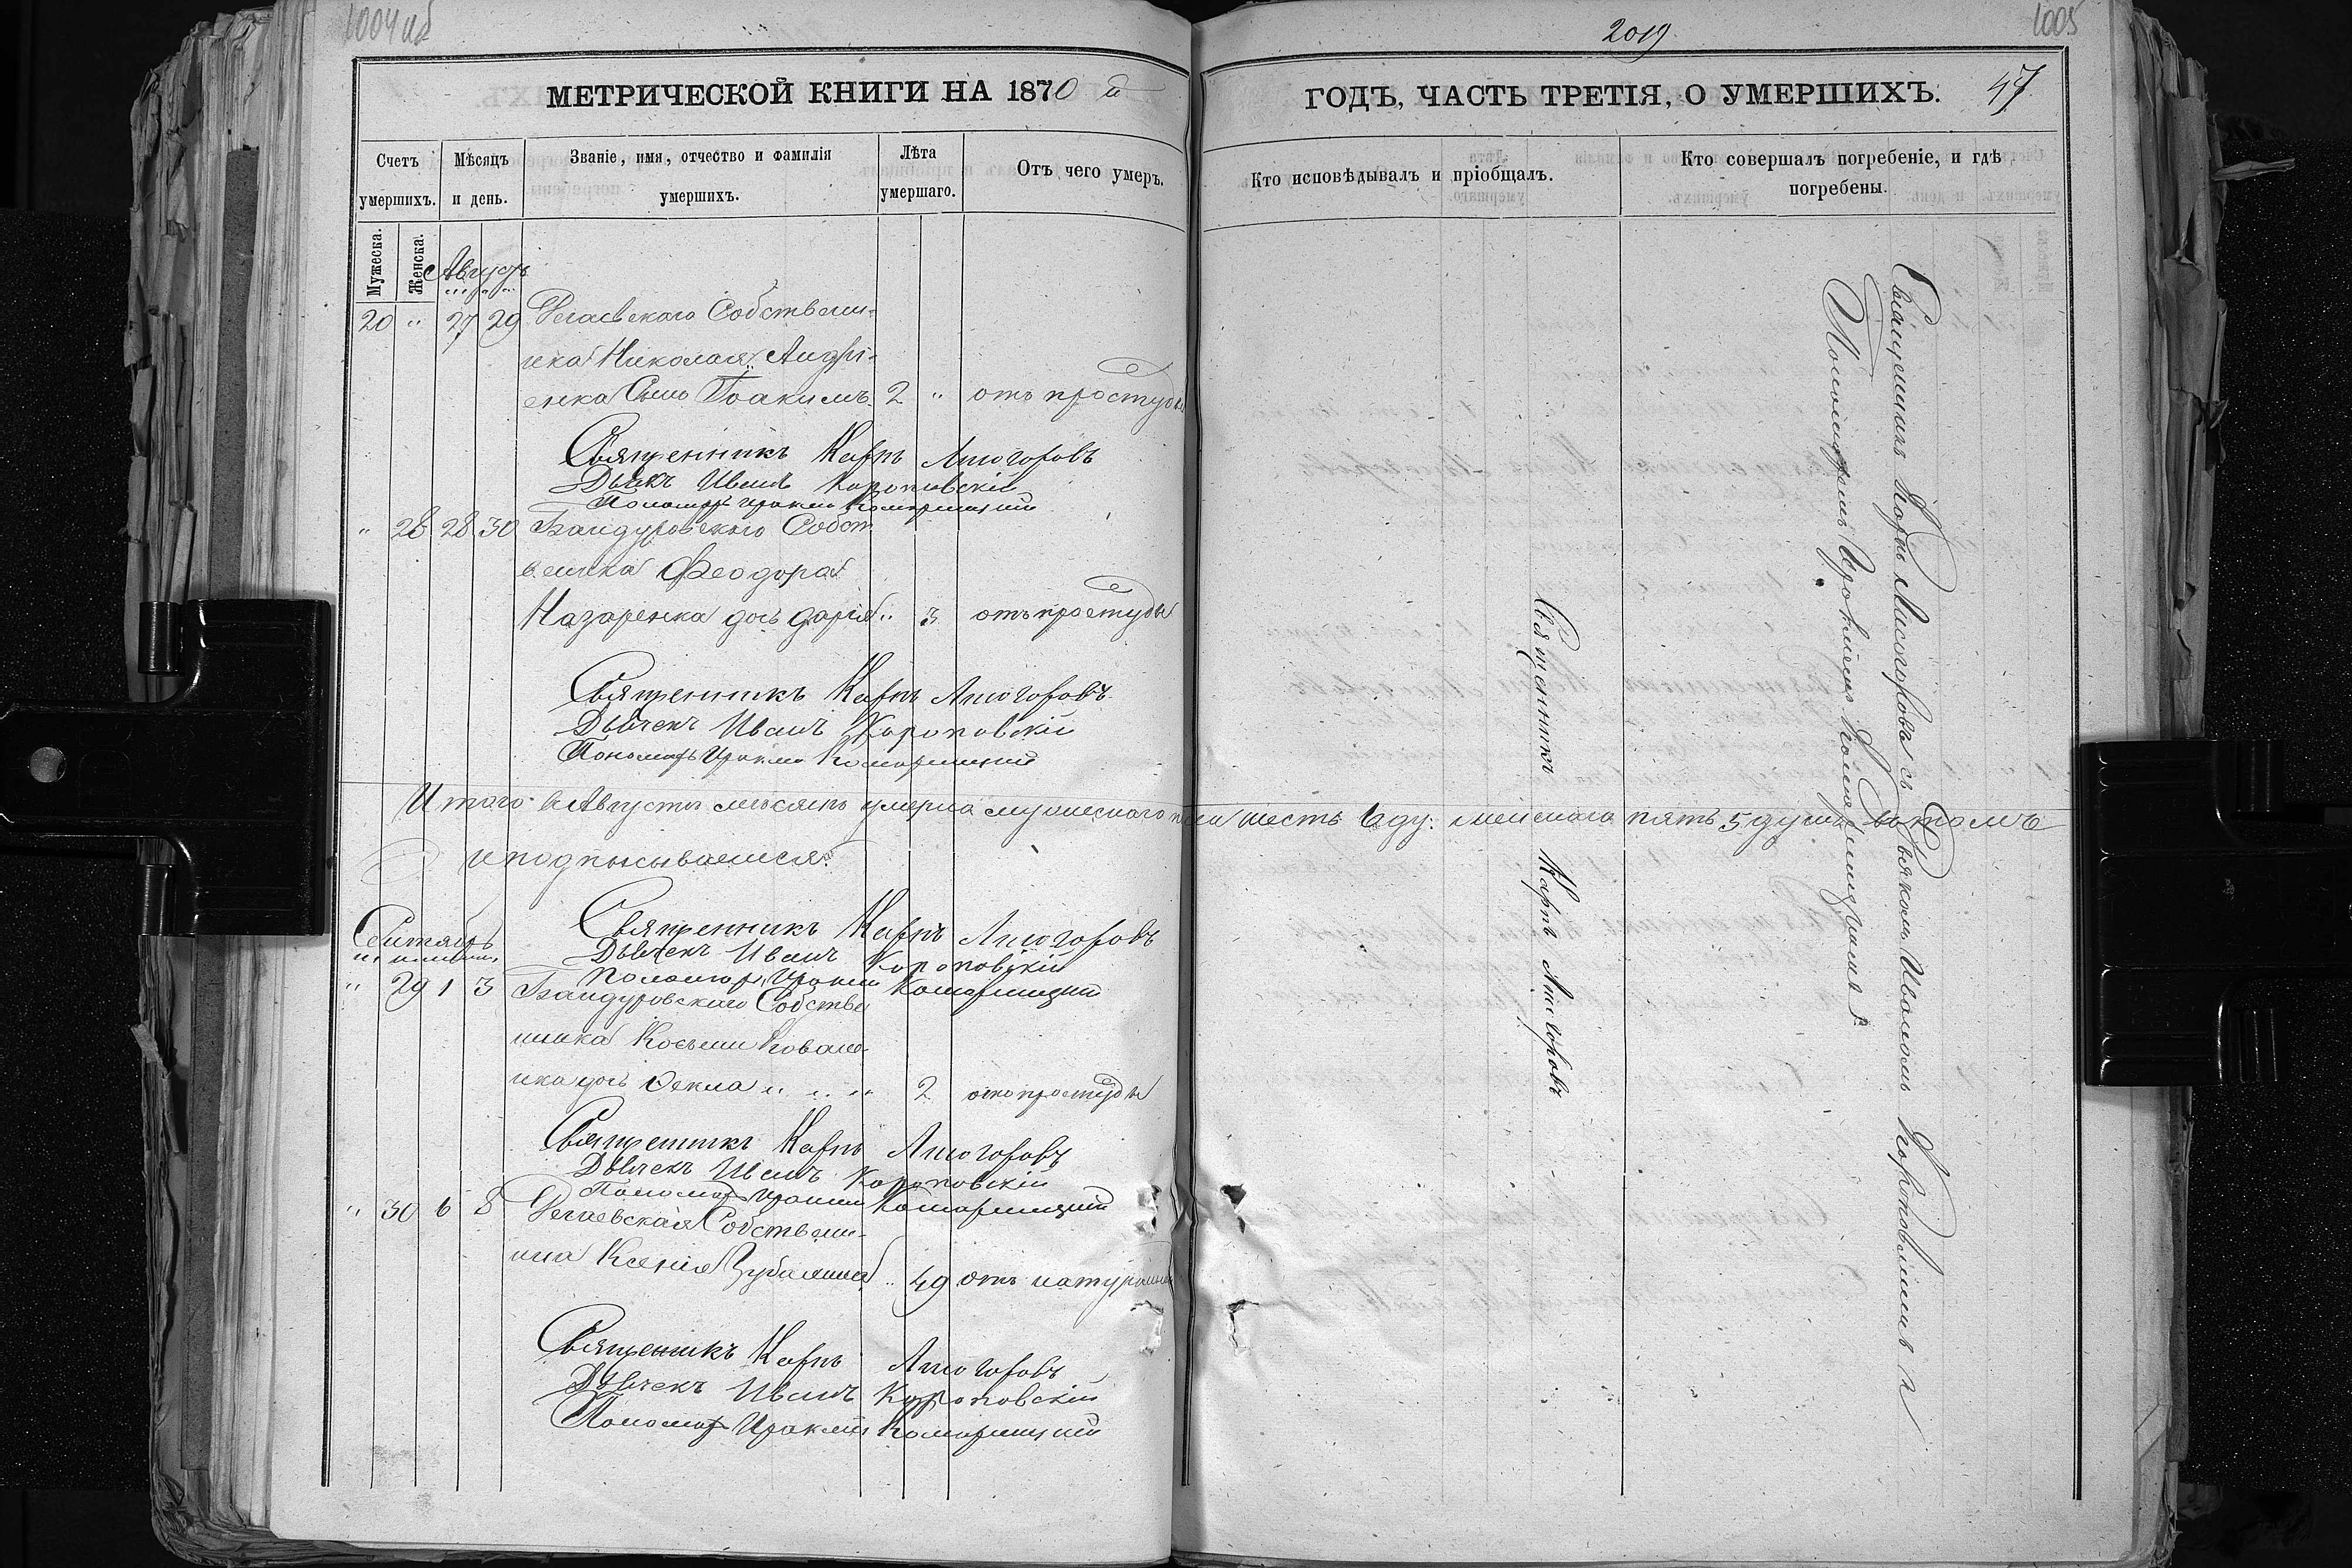 1004 об
МЕТРИЧЕСКОЙ КНИГИ НА 1870 й
Счетъ умершихъ.
Мѣсяцъ и день.
Званіе, имя, отчество и фамилія умершихъ.
Лѣта умершаго.
Отъ чего умеръ.
Мужеска.
Женска.
Августъ
20 " 27 29 Собствени-
ка Николая Андрі-
енка сынъ Іоакимъ 2 " отъ простуды
Священникъ Карпъ Лисогоровъ
Дьячекъ Иванъ Короповскій
Пономарь Ираклій Комарницкій
" 28 28 30 Бандуровского Собст
веника Феодора
Назаренка дочь Дарія " 3 отъ простуды
Священникъ Карпъ Лисогоровъ
Дьячекъ Иванъ Короповскій
Пономарь Ираклій Комарницкій
Итого въ Августѣ мѣсяцѣ умерло мужескаго пола шесть 6 ду: женскаго пять 5 душъ въ томъ
и подписываемся:
Священникъ Карпъ Лисогоровъ
Дьячекъ Иванъ Короповскій
Пономарь Ираклій Комарницкій
Сентябрь
" 29 1 3 Бандуровского Собстве
нника Косьмы Ковале-
нка дочь Фекла " " " 2 отъ простуды
Священникъ Карпъ Лисогоровъ
Дьячекъ Иванъ Короповскій
Пономарь Ираклій Комарницкій
" 30 6 8 Собствени-
ица Ксенія " 49 отъ натуральной
Священникъ Карпъ Лисогоровъ
Дьячекъ Иванъ Короповскій
Пономарь Ираклій Комарницкій
2019
1005
ГОДЪ, ЧАСТЬ ТРЕТІЯ, О УМЕРШИХЪ. 47
Кто исповѣдывалъ и пріобщалъ.
Кто совершалъ погребеніе, и гдѣ погребены.
Священникъ Карпъ Лисогоровъ
Священникъ Карпъ Лисогоровъ съ Дьякомъ Иваномъ Короповскимъ и
Пономаремъ Иракліемъ Комарницкимъ